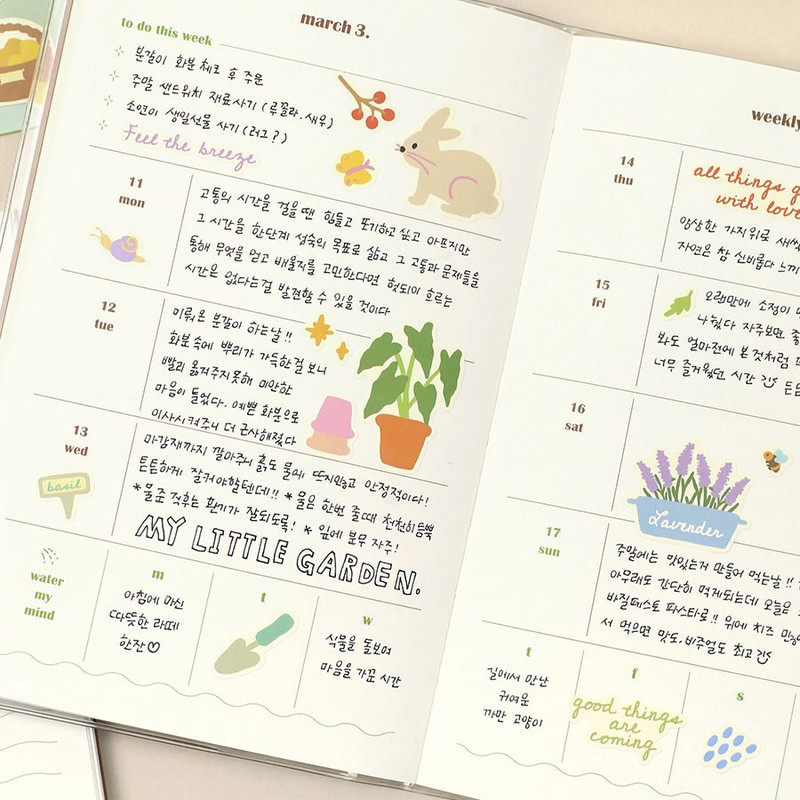 march 3.
to do this week
분갈이 화분 체크 후 주문
주말 샌드위치 재료사기 (루꼴라, 새우)
소연이 생일선물 사기 (러그?)
Feel the breeze
11
mon
고통의 시간을 걸을땐 힘들고 포기하고 싶고 아프지만
그 시간을 한단계 성숙의 목표로 삼고 그 고통과 문제들을
통해 무엇을 얻고 배울지를 고민한다면 헛되이 흐르는
시간은 없다는걸 발견할 수 있을 것이다
12
tue
미뤄온 분갈이 하는날!!
화분속에 뿌리가 가득한걸 보니
빨리 옮겨주지못해 미안한
마음이 들었다. 예쁜 화분으로
이사시켜주니 더 근사해졌다
13
wed
마감재까지 깔아주니 흙도 물에 뜨지않고 안정적이다!
튼튼하게 잘커야할텐데!! * 물은 한번 줄때 천천히듬뿍
* 물준 직후는 환기가 잘되도록! * 잎에 분무 자주!
basil
MY LITTLE GARDEN.
water
my
mind
m
아침에 마신
따뜻한 라떼
한잔♡
t
w
식물을 돌보며
마음을 가꾼 시간
weekly
14
thu
all things g
with love
앙상한 가지위로 새싹
자연은 참 신비롭다 느끼
15
fri
오랜만에 소정이
나눴다 자주보면 좋
봐도 얼마전에 본것처럼
너무 즐거웠던 시간
16
sat
Lavender
17
sun
주말에는 맛있는거 만들어 먹는날!!
아무래도 간단히 먹게되는데 오늘은
바질페스토 파스타로!! 위에 치즈
서 먹으면 맛도, 비주얼도 최고
t
길에서 만난
귀여운
까만 고양이
f
good things
are
coming
s